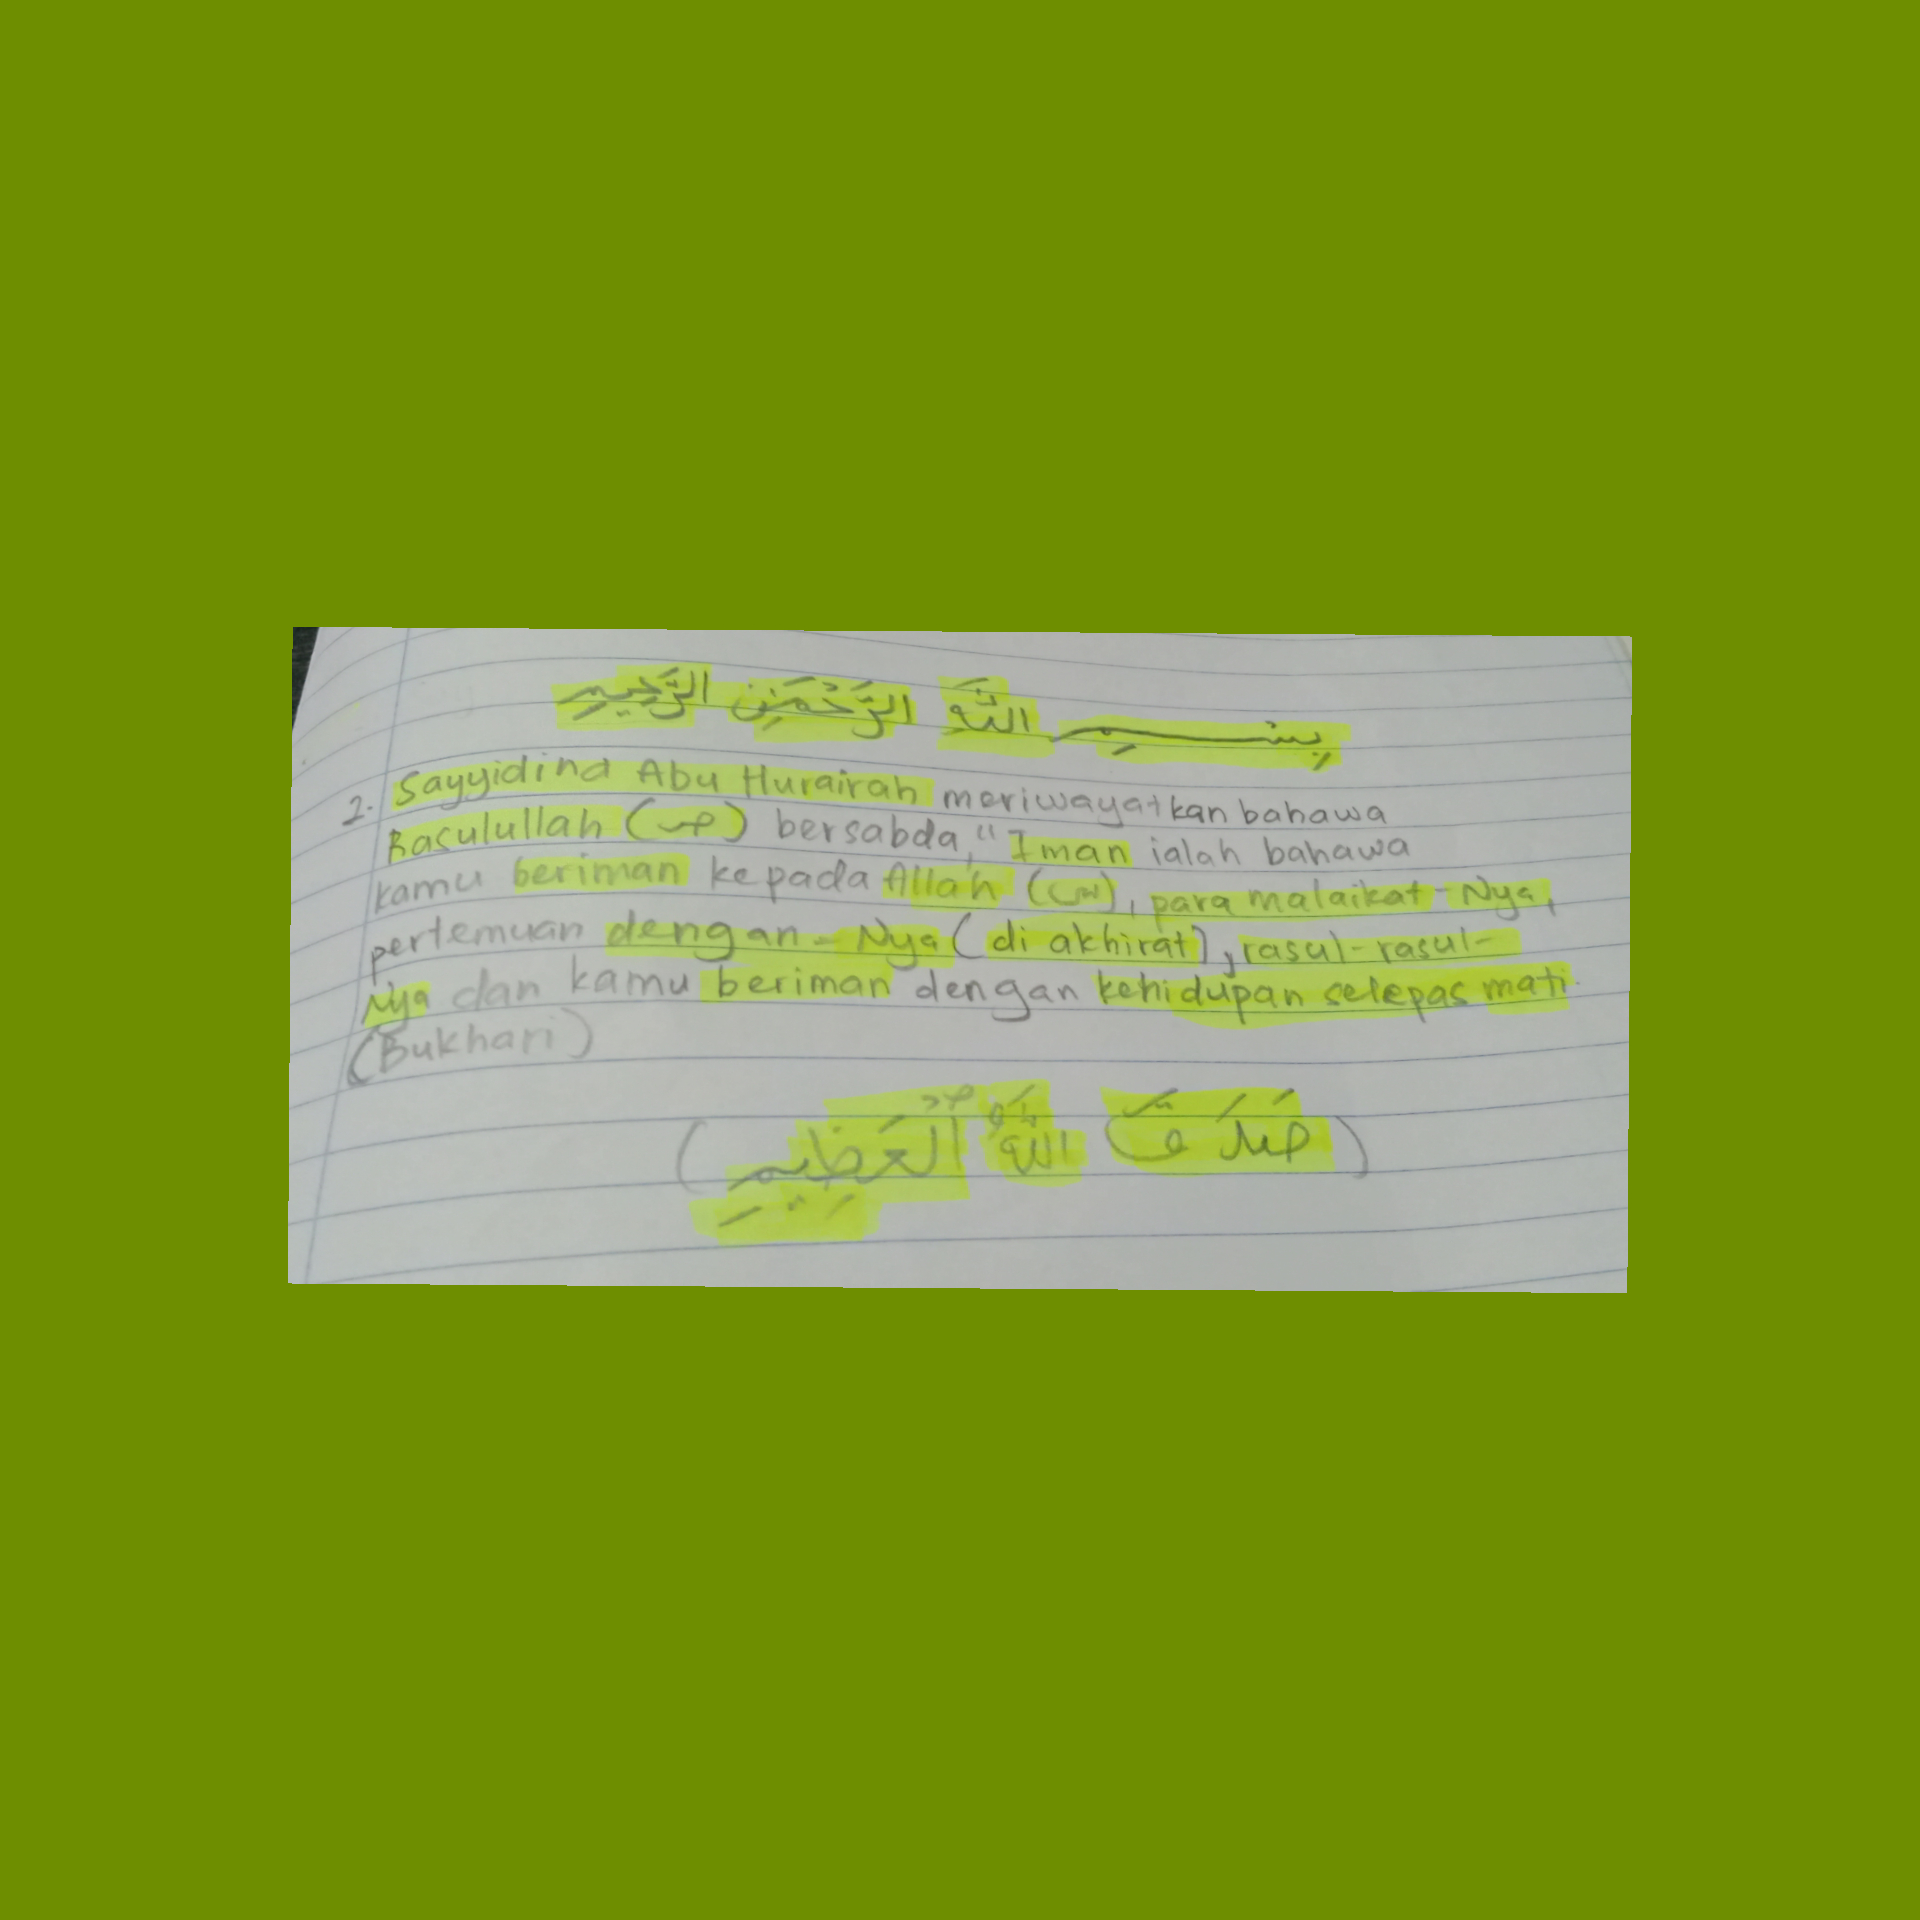 بِسْــــــمِ اللَّهِ الرَّحْمَنِ الرَّحِيمِ
2. Sayyidina Abu Hurairah meriwayatkan bahawa
Rasulullah (ص) bersabda, "Iman ialah bahawa
kamu beriman kepada Allah (س), para malaikat-Nya,
pertemuan dengan-Nya (di akhirat), rasul-rasul-
Nya dan kamu beriman dengan kehidupan selepas mati.
(Bukhari)
(صَدَقَ اللهُ الْعَظِيمِ)